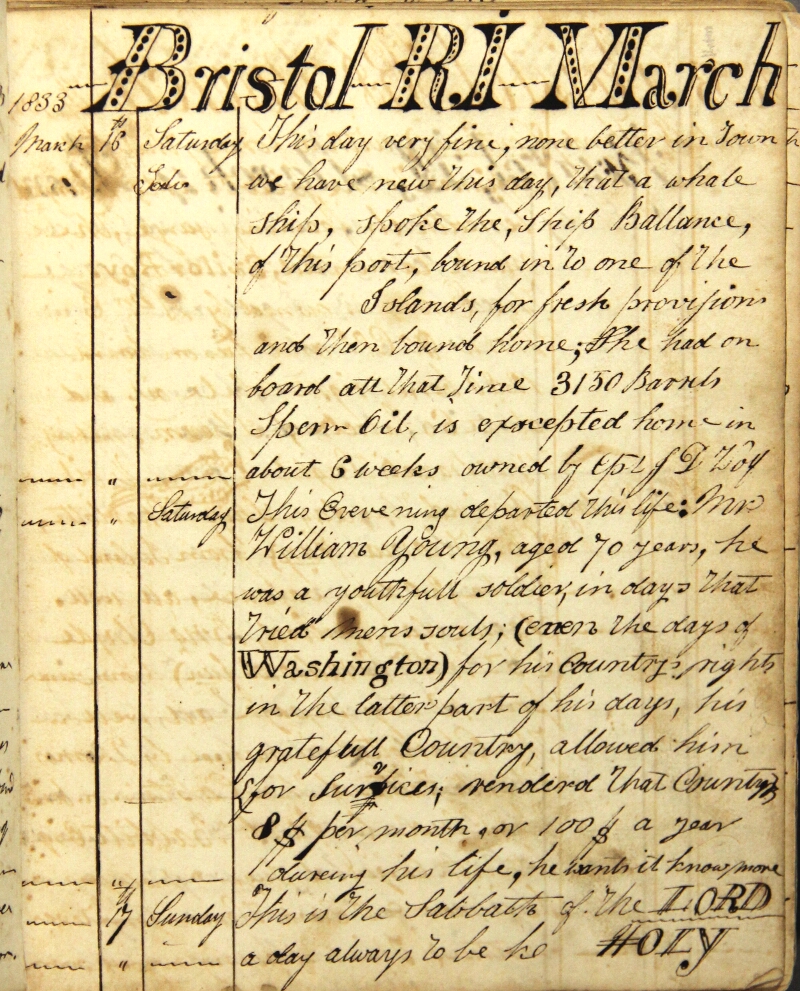 Bristol RI March
1833
March 16th Saturday This day very fine, none better in Town
we have new this day, that a whale
ship, spoke the, Ship Ballance,
of this port, bound in to one of the
Islands, for fresh provisions
and then bound home; She had on
board att that Time 3150 Barrels
Sperm Oil, is excepted home in
about 6 weeks owned by
Saturday This Evevening departed this life: Mr
William Young, aged 70 years, he
was a youthfull soldier, in days that
tried mens souls; (even the days of
Washington) for his Countrys rights
in the latter part of his days, his
gratefull Country, allowed him
for Survices; renderd that Country
8 $ per month, or 100 $ a year
dureing his life, he wants it know more
17th Sunday This is the Sabbath of the LORD
a day always to be ke HOLY